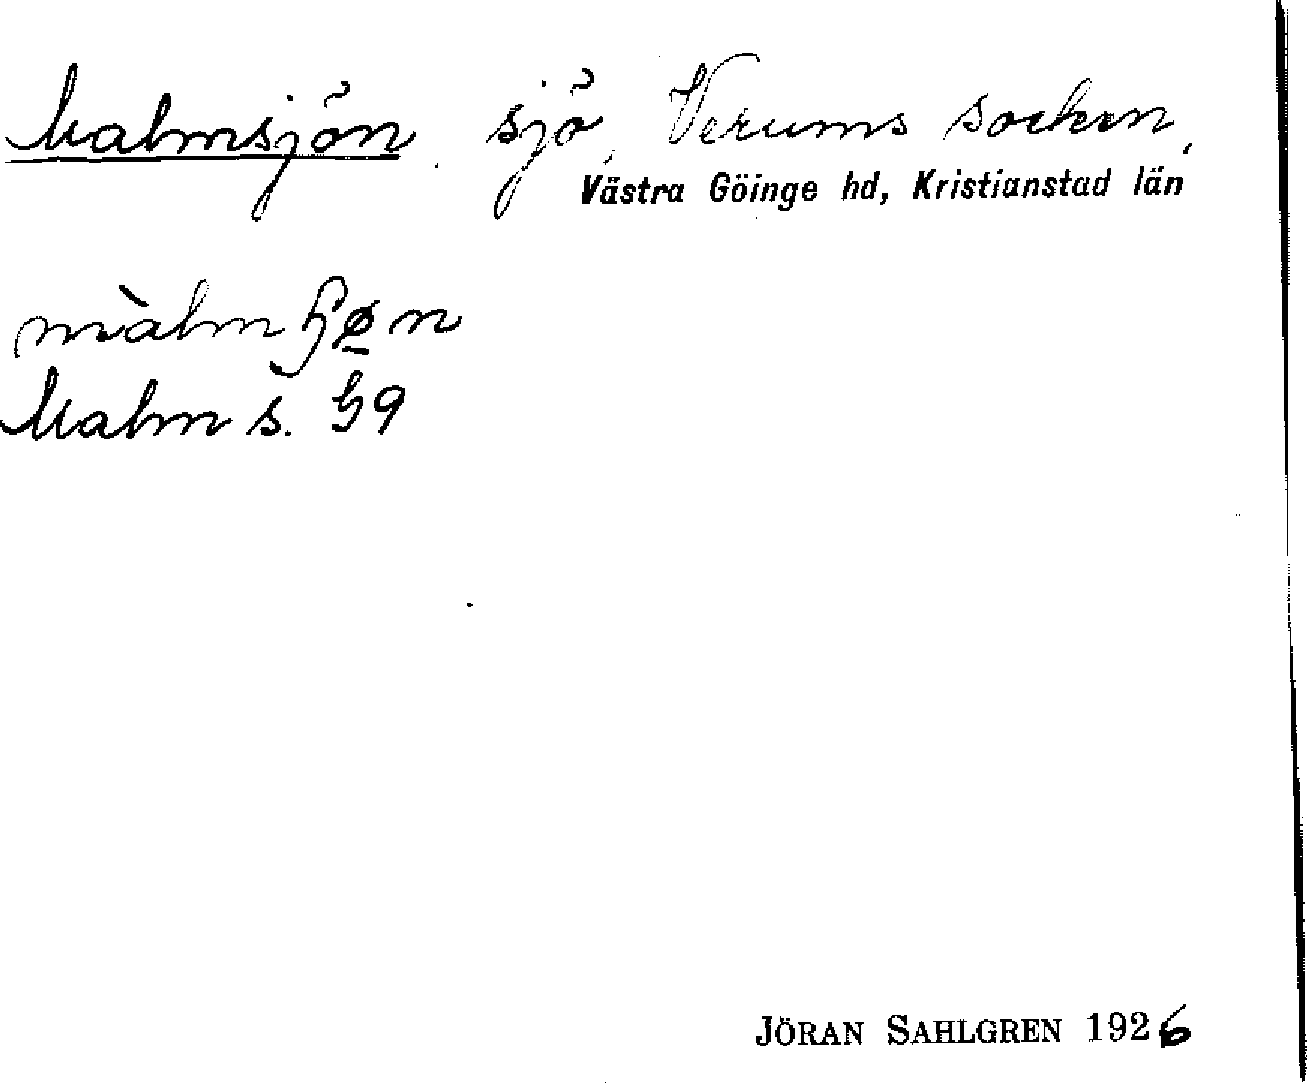 Malmsjön sjö, Verums socken,
Västra Göinge hd, Kristianstad län
Malm s.
JÖRAN SAHLGREN 1926